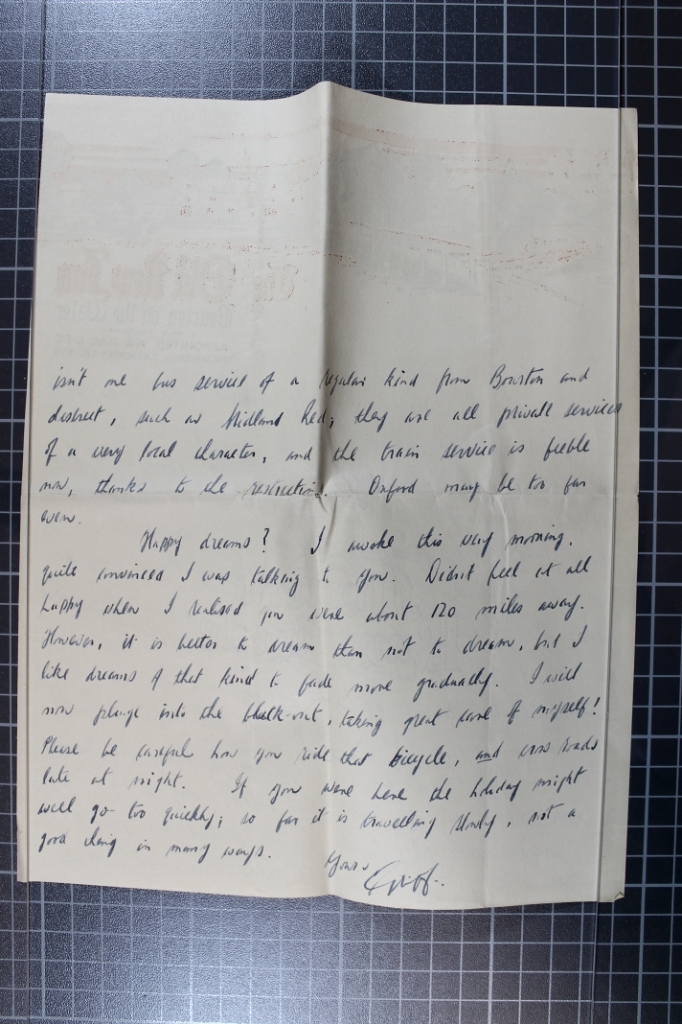 isn't one bus service of a regular kind from Bourton and
district, such as Midland Red; they are all private services
of a very local character, and the train service is feeble
now, thanks to the restrictions. Oxford may be too far
even.
Happy dreams? I awoke this very morning,
quite convinced I was talking to you. Didn't feel at all
happy when I realised you were about 120 miles away.
However, it is better to dream than not to dream, but I
like dreams of that kind to fade more gradually. I will
now plunge into the black-out, taking great care of myself!
Please be careful how you ride that bicycle, and cross roads
late at night. If you were here the holiday might
well go too quickly; so far it is travelling slowly, not a
good thing in many ways.
Yours